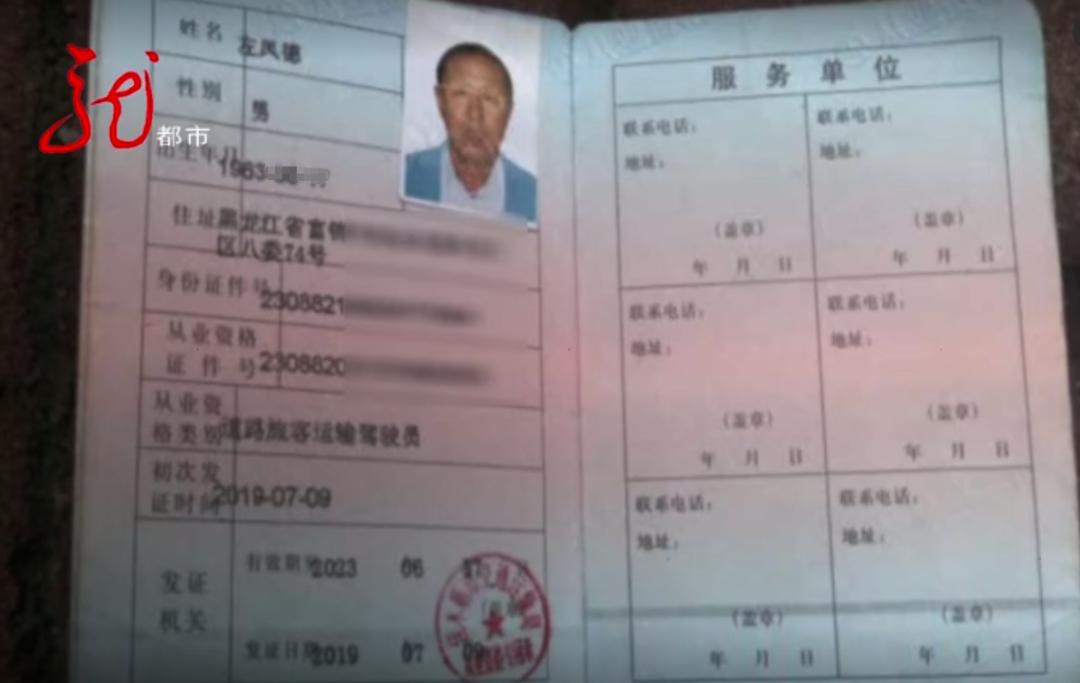 姓名 左凤德
性别 男
都市
出生年月 1963-
住址 黑龙江省富锦
区八委74号
身份证件号 2308821
从业资格
证件号 2308820
从业资
格类别 道路旅客运输驾驶员
初次发
证时间 2019-07-09
发证
机关
有效期 2023 06
发证日期 2019 07 09
服务单位
联系电话: 联系电话:
地址: 地址:
(盖章) (盖章)
年 月 日 年 月 日
联系电话: 联系电话:
地址: 地址:
(盖章) (盖章)
年 月 日 年 月 日
联系电话: 联系电话:
地址: 地址:
(盖章) (盖章)
年 月 日 年 月 日